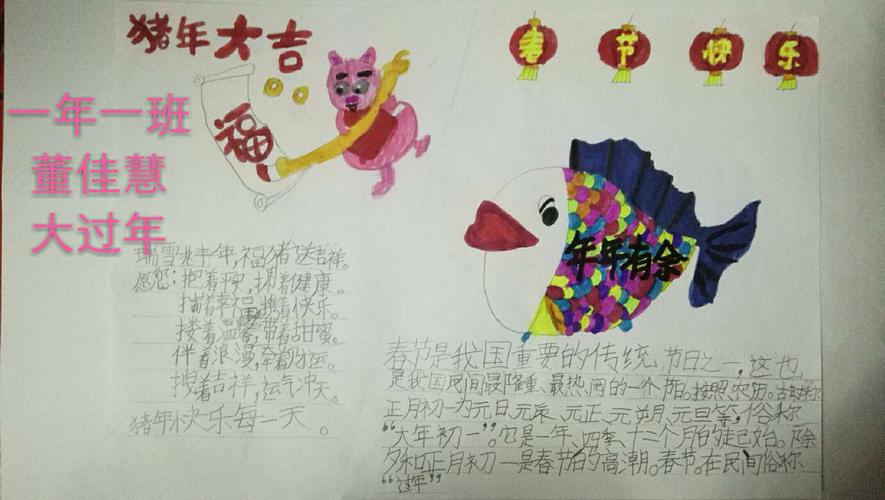 猪年大吉
福
春节快乐
一年一班
董佳慧
大过年
年年有余
瑞雪兆丰年,福猪送吉祥。
愿您:抱着平安,拥着健康。
揣着幸福,携着快乐。
搂着温馨,带着甜蜜。
伴着浪漫,牵着财运。
拽着吉祥,运气冲天。
猪年快乐每一天。
春节是我国重要的传统节日之一,这也
是我国民间最隆重、最热闹的一个节日。按照农历。古时称
正月初一为元日、元辰、元正、元朔、元旦等,俗称
“大年初一”。它是一年、四季、十二个月的起始。除
夕和正月初一是春节的高潮。春节。在民间俗称
“过年”